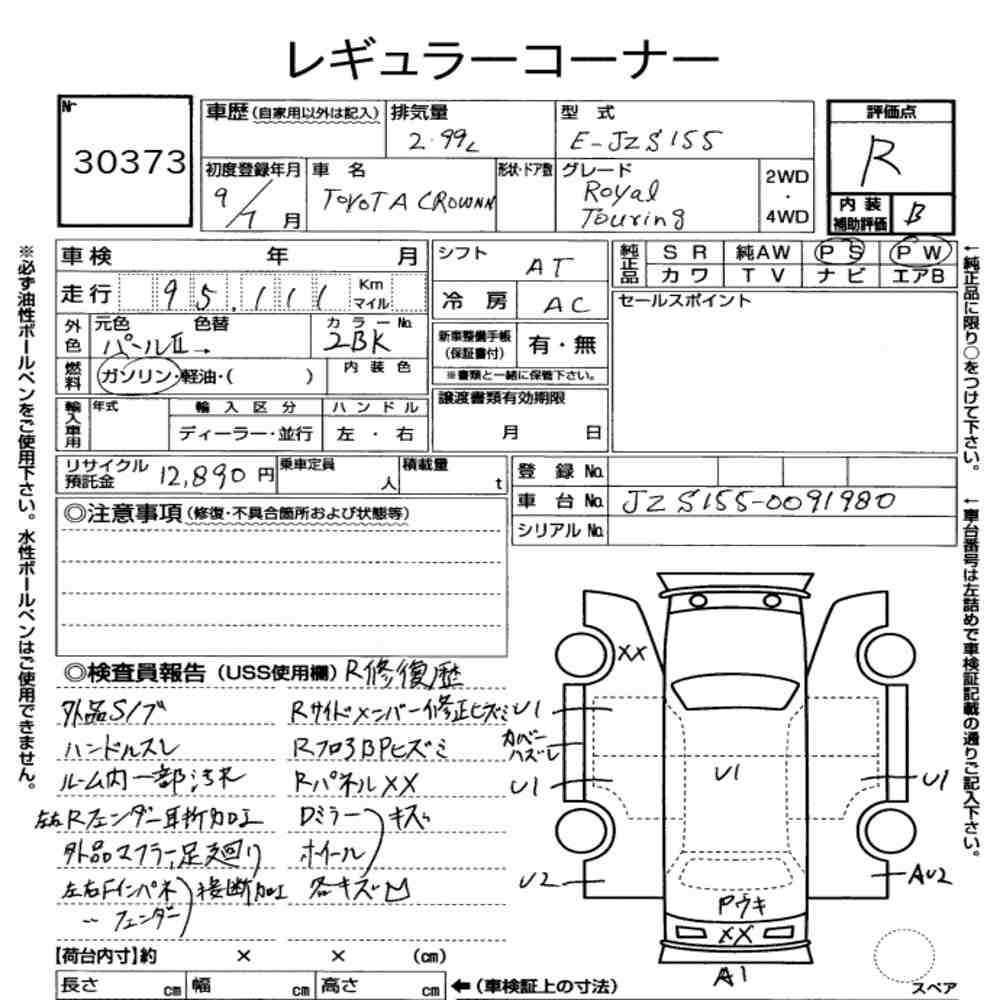 レギュラーコーナー
Nr
30373
車歴(自家用以外は記入)
排気量
2.99L
型 式
E-JZS155
評価点
R
初度登録年月
9/7月
車 名
TOYOTA CROWN
形状・ドア数
グレード
Royal
Touring
2WD
・
4WD
内 装
補助評価
B
車検 年 月
走行 95,111 Km
マイル
シフト
AT
冷 房
AC
純正品
S R 純AW P S P W
カ ワ T V ナ ビ エアB
セールスポイント
外色
元色 色替
パールⅡ→
カラーNo.
2BK
新車整備手帳
(保証書付)
有・無
※書類と一緒に保管下さい。
燃料
ガソリン・軽油・( )
内 装 色
譲渡書類有効期限
月 日
輸入車用
年式
輸 入 区 分
ディーラー・並行
ハ ン ド ル
左 ・ 右
リサイクル
預託金
12,890円
乗車定員
人
積載量
t
登 録 No.
車 台 No. JZS155-0091980
シリアル No.
◎注意事項(修復・不具合箇所および状態等)
◎検査員報告(USS使用欄)R修復歴
外品S/ブ
ハンドルスレ
ルーム内一部汚れ
左右Rフェンダー耳折加工
外品マフラー,足廻り
左右Fインパネ
〃 フェンダー
接断加工
Rサイドメンバー修正ヒズミ
Rフロア BPヒズミ
Rパネル XX
Dミラー
ホイール
キズ
各キズ凹
XX
U1
カバー
ハズレ
U1
U1
U1
U2
AU2
Pウキ
XX
A1
【荷台内寸】約 × × (cm)
長さ cm 幅 cm 高さ cm
←(車検証上の寸法)
スペア
※必ず油性ボールペンをご使用下さい。水性ボールペンはご使用できません。
←純正品に限り○をつけて下さい。
←車台番号は左詰めで車検証記載の通りご記入下さい。